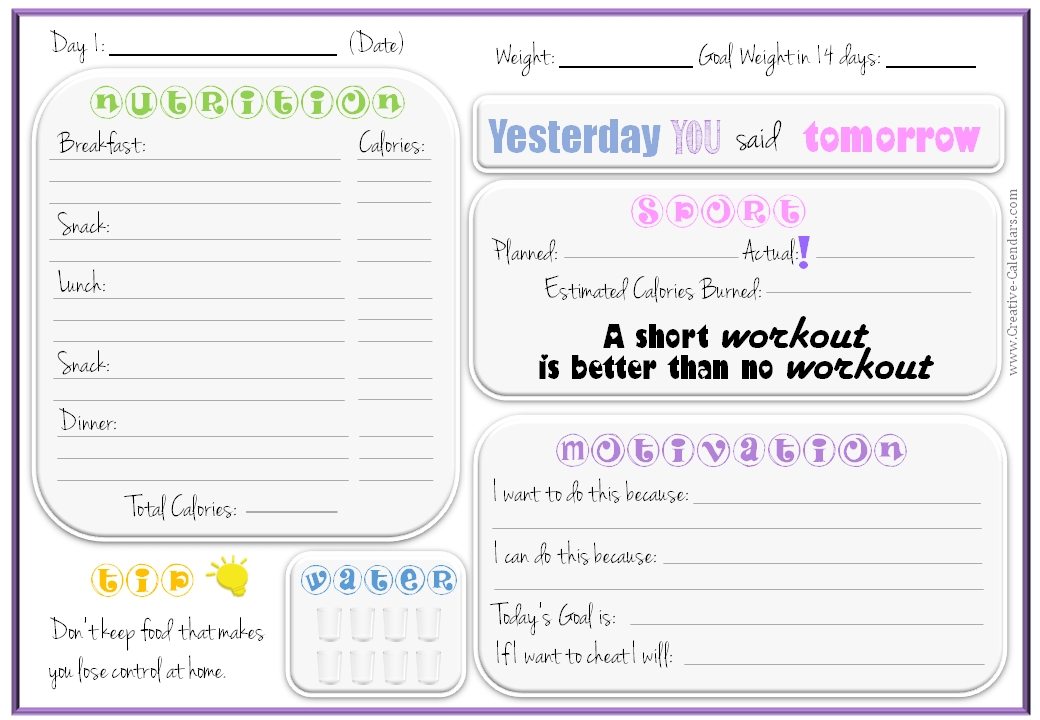 Day 1: (Date)
Weight: Goal Weight in 14 days:
NUTRITION
Breakfast: Calories:
Snack:
Lunch:
Snack:
Dinner:
Total Calories:
tip
Don't keep food that makes
you lose control at home.
WATER
Yesterday YOU said tomorrow
SPORT
Planned: Actual:!
Estimated Calories Burned:
A short workout
is better than no workout
MOTIVATION
I want to do this because:
I can do this because:
Today's Goal is:
If I want to cheat I will:
www.Creative-Calendars.com